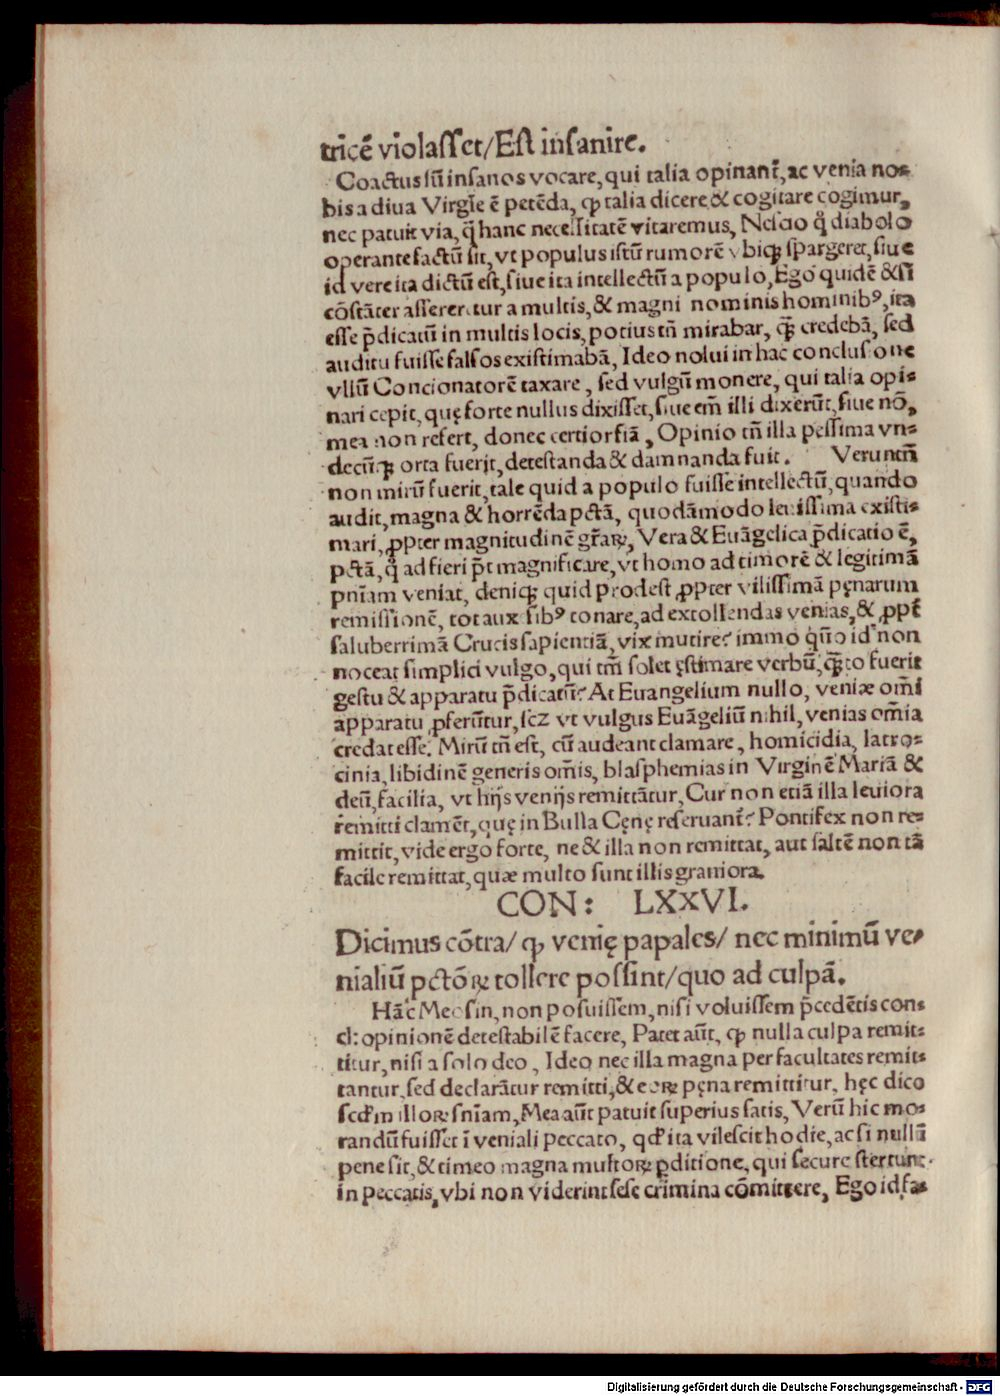 tricē violasset/Est insanire.
Coactus sū insanos vocare, qui talia opinanť, ac venia no⸗
bis a diua Virgīe ē petēda, ꝙ talia dicere & cogitare cogimur,
nec patuit via, q̄ hanc necessitatē vitaremus, Nescio q̊ diabolo
operante factū sit, vt populus istū rumorē vbiqꝫ spargeret, siue
id vere ita dictū est, siue ita intellectū a populo, Ego quidē & si
cōstāter assereretur a multis, & magni nominis hominibꝰ, ita
esse p̄dicatū in multis locis, potius tn̄ mirabar, qꝫ̄ credebā, sed
auditu fuisse falsos existimabā, Ideo nolui in hac conclusione
vllū Concionatorē taxare, sed vulgū monere, qui talia opi⸗
nari cepit, quę forte nullus dixisset, siue em̄ illi dixerūt, siue nō,
mea non refert, donec certior fiā, Opinio tn̄ illa pessima vn⸗
decūqꝫ orta fuerit, detestanda & damnanda fuit. Veruntn̄
non mirū fuerit, tale quid a populo fuisse intellectū, quando
audit, magna & horrēda pctā, quodāmodo leuissima existi⸗
mari, ꝓpter magnitudinē gr̄aꝝ, Vera & Euāgelica p̄dicatio ē,
pctā, q̊ ad fieri pōt magnificare, vt homo ad timorē & legitimā
pn̄iam veniat, deniqꝫ quid prodest ꝓpter vilissimā pęnarum
remissionē, tot aux sibꝰ tonare, ad extollendas venias, & ꝓpť
saluberrimā Crucis sapientiā, vix mutire? immo quō id non
noceat simplici vulgo, qui tm̄ solet ęstimare verbū, qꝫ̄to fuerit
gestu & apparatu p̄dicatū? At Euangelium nullo, veniæ om̄i
apparatu ꝓferūtur, scz vt vulgus Euāgeliū nihil, venias om̄ia
credat esse. Mirū tn̄ est, cū audeant clamare, homicidia, latro⸗
cinia, libidinē generis om̄is, blasphemias in Virginē Mariā &
deū, facilia, vt hijs venijs remittātur, Cur non etiā illa leuiora
remitti clamēt, quę in Bulla Cęnę reseruanť? Pontifex non re⸗
mittit, vide ergo forte, ne & illa non remittat, aut saltē non tā
facile remittat, quæ multo sunt illis grauiora.
CON: LXXVI.
Dicimus cōtra/ ꝙ venię papales/ nec minimū ve⸗
nialiū pctōꝝ tollere possint/quo ad culpā.
Hāc Meosin, non posuissem, nisi voluissem p̄cedētis con⸗
cl: opinionē detestabilē facere, Patet aūt, ꝙ nulla culpa remit⸗
titur, nisi a solo deo, Ideo nec illa magna per facultates remit⸗
tantur, sed declarātur remitti, & eoꝝ pęna remittitur, hęc dico
scd̄m illoꝝ sn̄iam, Mea aūt patuit superius satis, Verū hic mo⸗
randū fuisset ī veniali peccato, qđ ita vilescit hodie, ac si nullū
pene sit, & timeo magna multoꝝ ꝑditione, qui secure stertunt
in peccatis, vbi non viderint sese crimina cōmittere, Ego id fa⸗
Digitalisierung gefördert durch die Deutsche Forschungsgemeinschaft - DFG